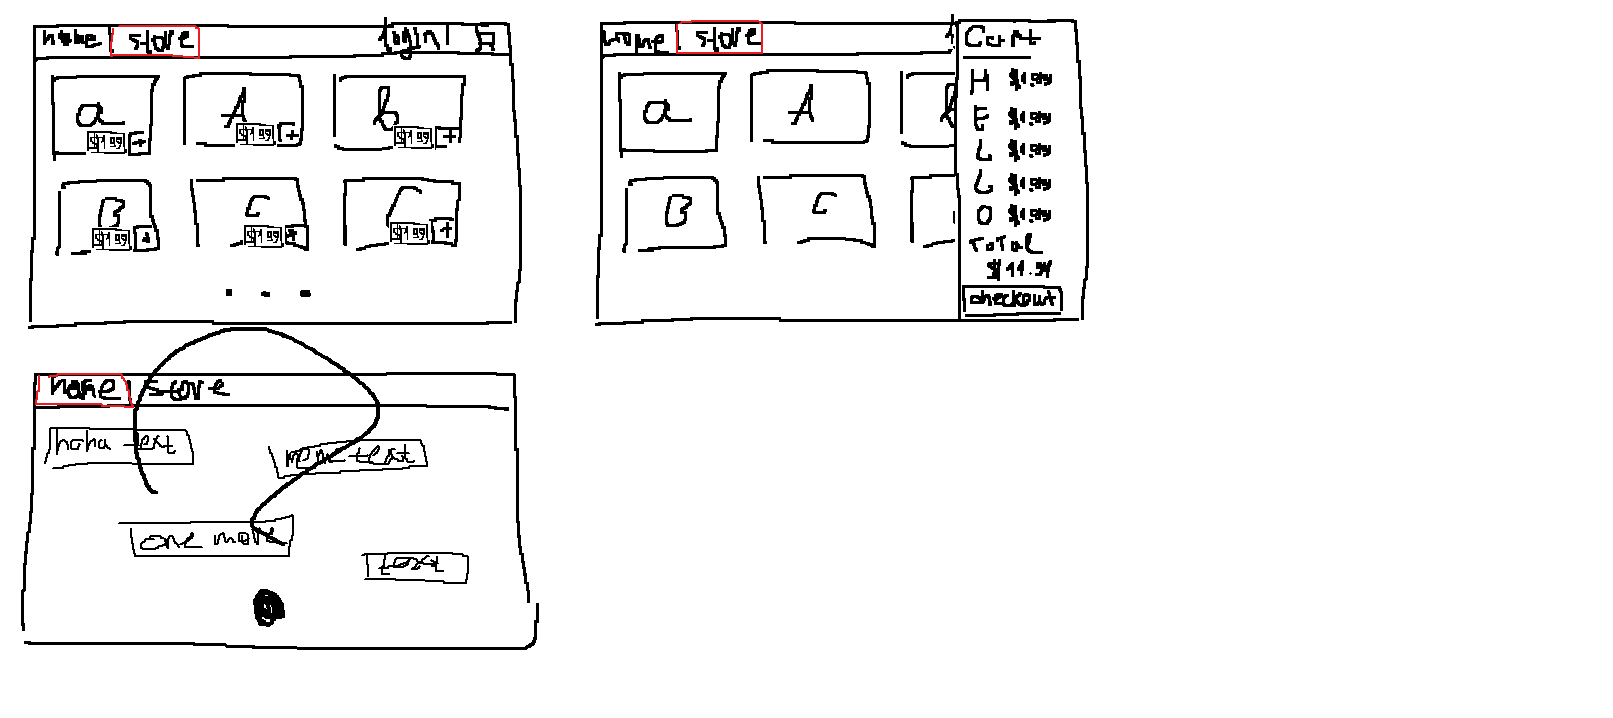 home store login
a A b
$1.99 + $1.99 + $1.99 +
B C C
$1.99 + $1.99 + $1.99 +
home store
a A b
B C
Cart
H $1.99
E $1.99
L $1.99
L $1.99
O $1.99
TOTAL
checkout
home store
haha text
more text
one more
text